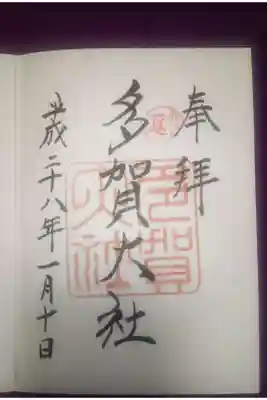 奉拝
多賀大社
平成二十八年一月十日
多賀大社